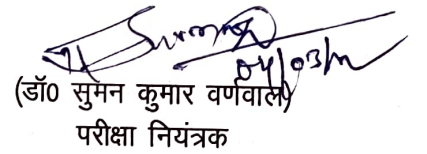 04/03/
(डॉ0 सुमन कुमार वर्णवाल)
परीक्षा नियंत्रक